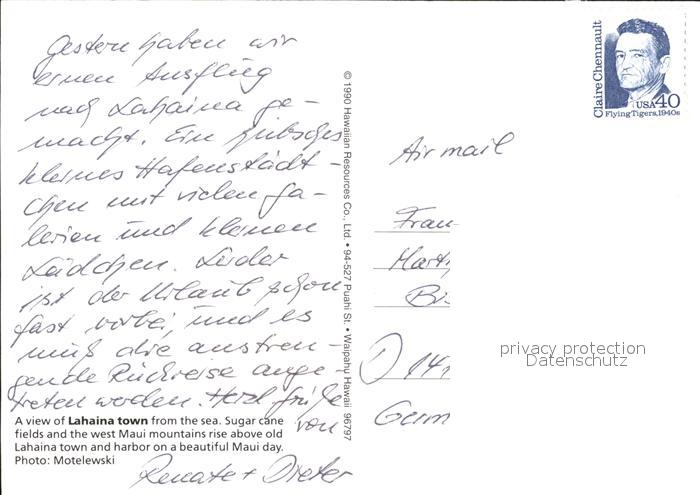 Gestern haben wir
einen Ausflug
nach Lahaina ge-
macht. Ein hübsches
kleines Hafenstädt-
chen mit vielen Ga-
lerien und kleinen
Lädchen. Leider
ist der Urlaub schon
fast vorbei, und es
muß die anstren-
gende Rückreise ange-
treten werden. Herzl. Grüße
von
Renate + Dieter
A view of Lahaina town from the sea. Sugar cane
fields and the west Maui mountains rise above old
Lahaina town and harbor on a beautiful Maui day.
Photo: Motelewski
© 1990 Hawaiian Resources Co., Ltd. • 94-527 Puahi St. • Waipahu Hawaii 96797
Claire Chennault
USA 40
Flying Tigers, 1940s
Air mail
Frau
Mart
Bi
D 14
Germ
privacy protection
Datenschutz